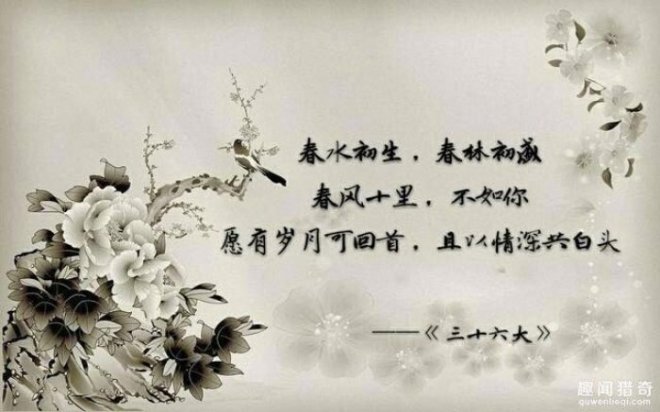 春水初生，春林初盛
春风十里，不如你
愿有岁月可回首，且以情深共白头
——《三十六大》
趣闻猎奇
quwenlieqi.com